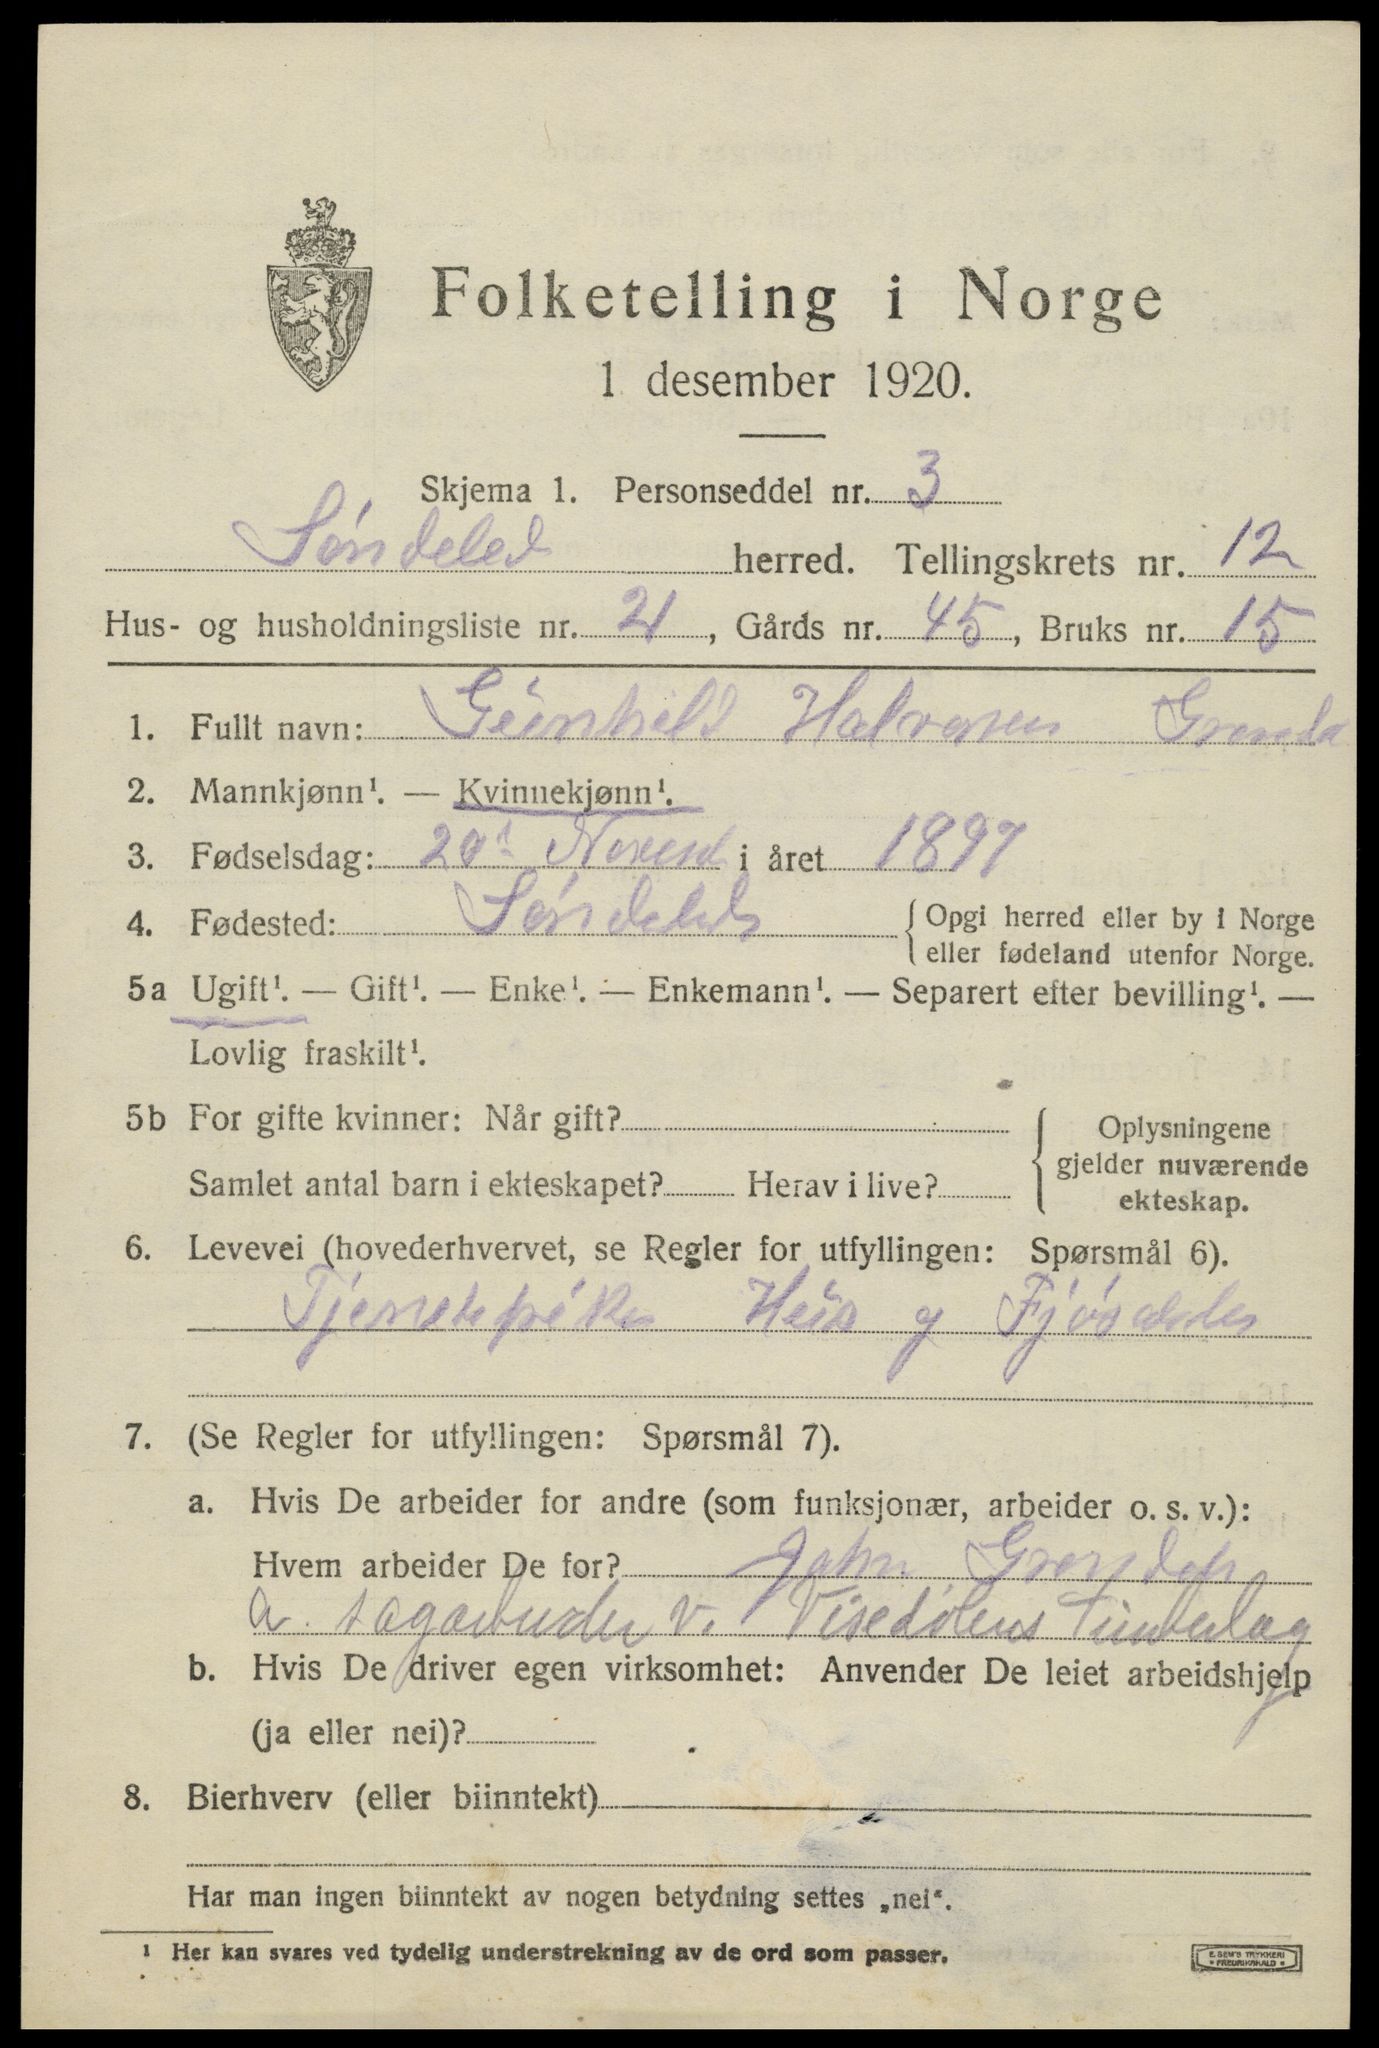 Folketelling i Norge
1 desember 1920.
Skjema 1. Personseddel nr. 3
Søndeled herred. Tellingskrets nr. 12
Hus- og husholdningsliste nr. 21, Gårds nr. 45, Bruks nr. 15
1. Fullt navn: Gunhild Halvorsen
2. Mannkjønn¹. — Kvinnekjønn¹.
3. Fødselsdag: 20de Novemb i året 1897
4. Fødested: Søndeled { Opgi herred eller by i Norge
eller fødeland utenfor Norge.
5a Ugift¹. — Gift¹. — Enke¹. — Enkemann¹. — Separert efter bevilling¹. —
Lovlig fraskilt¹.
5b For gifte kvinner: Når gift?
Samlet antal barn i ekteskapet? Herav i live?
{ Oplysningene
gjelder nuværende
ekteskap.
6. Levevei (hovederhvervet, se Regler for utfyllingen: Spørsmål 6).
Tjenestepike Hus og Fjøsstel
7. (Se Regler for utfyllingen: Spørsmål 7).
a. Hvis De arbeider for andre (som funksjonær, arbeider o. s. v.):
Hvem arbeider De for? John
v.
b. Hvis De driver egen virksomhet: Anvender De leiet arbeidshjelp
(ja eller nei)?
8. Bierhverv (eller biinntekt)
Har man ingen biinntekt av nogen betydning settes „nei“.
¹ Her kan svares ved tydelig understrekning av de ord som passer.
E. SEM'S TRYKKERI
* FREDRIKSHALD *